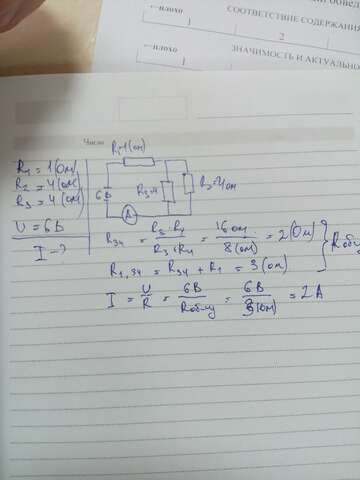 плохо
1
СООТВЕТСТВИЕ СОДЕРЖАНИЯ
2
плохо
1
ЗНАЧИМОСТЬ И АКТУАЛЬНО
Число
R₁=1(ом)
R₁ = 1(Ом)
R₂ = 4(ом)
R₃ = 4(ом)
U = 6В
I – ?
6В
R₃=4
R₂=4ом
A
R₃₄ = R₃·R₄ / R₃+R₄ = 16ом / 8(ом) = 2(Ом)
R₁,₃₄ = R₃₄ + R₁ = 3(ом)
I = U/R = 6В / Rобщ = 6В / 3(ом) = 2А